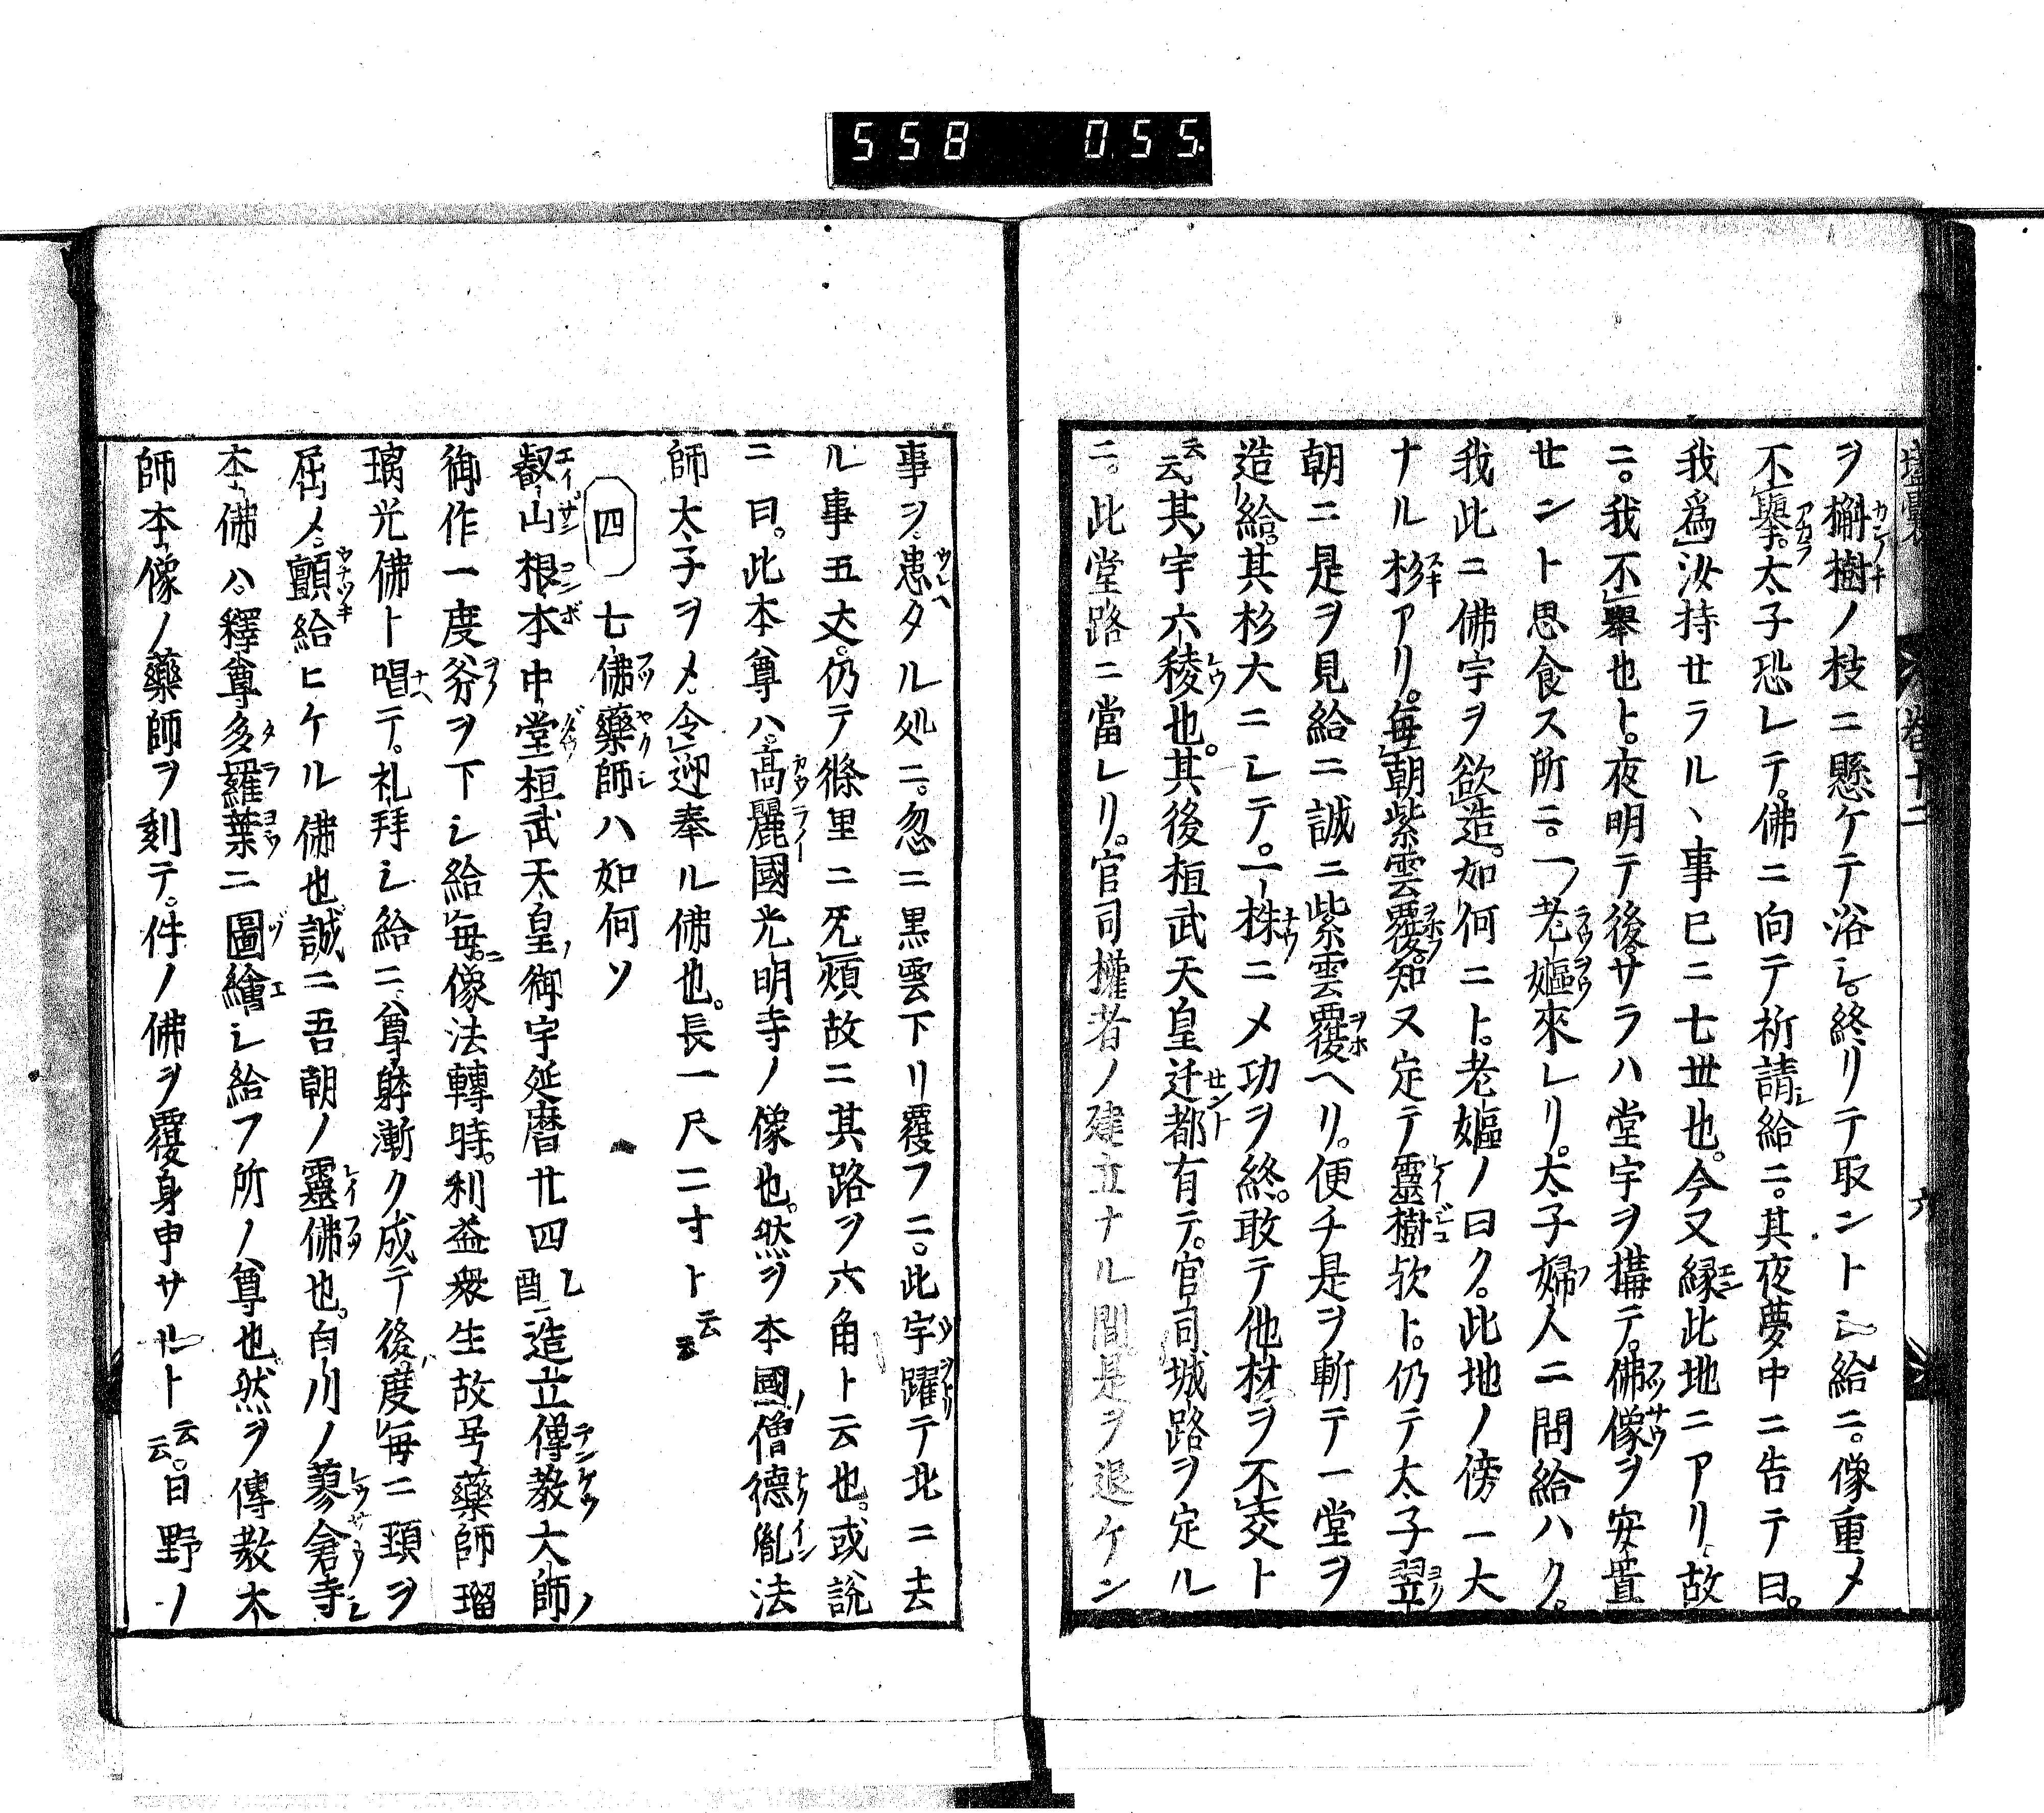 558 055
壒囊 卷十二 六
ヲ槲樹ノ枝ニ懸ケテ浴シ。終リテ取ントシ給ニ。像重メ
不擧。太子恐レテ。佛ニ向テ祈請シ給ニ。其夜夢中ニ告テ曰。
我爲汝持セラルヽ事巳ニ七丗也。今又縁此地ニアリ。故
ニ。我不擧也ト。夜明テ後。サラハ堂宇ヲ搆テ。佛像ヲ安置
せント思食ス所ニ。一老嫗來レリ。太子婦人ニ問給ハク。
我此ニ佛宇ヲ欲造。如何ニト。老嫗ノ曰ク。此地ノ傍一大
ナル杉アリ。毎朝紫雲覆。知ヌ定テ靈樹欤ト。仍テ太子翌
朝ニ是ヲ見給ニ誠ニ紫雲覆ヘリ。便チ是ヲ斬テ一堂ヲ
造給。其杉大ニシテ。一株ニメ功ヲ終。敢テ他材ヲ不交ト
云云。其宇六稜也。其後桓武天皇迁都有テ。官司城路ヲ定ル
ニ。此堂路ニ當レリ。官司權者ノ建立ナル間是ヲ退ケン
事ヲ患タル処ニ。忽ニ黒雲下リ覆フニ。此宇躍テ北ニ去
ル事五丈。仍テ條里ニ旡煩故ニ其路ヲ六角ト云也。或説
ニ曰。此本尊ハ。高麗國光明寺ノ像也。然ヲ本國ノ僧德胤法
師太子ヲメ令迎奉ル佛也。長一尺二寸ト云云
四 七佛藥師ハ如何ソ
叡山根本中堂桓武天皇ノ御宇延暦廿四乙酉造立傳教大師ノ
御作一度斧ヲ下シ給毎ニ。像法轉時。利益衆生故号藥師瑠
璃光佛ト唱テ。礼拜シ給ニ。尊躰漸ク成テ後度毎ニ頭ヲ
屈メ。顫給ヒケル佛也。誠ニ吾朝ノ靈佛也。白川ノ蓼倉寺
本佛ハ。釋尊多羅葉ニ圖繪シ給フ所ノ尊也。然ヲ傳教大
師本像ノ藥師ヲ刻テ。件ノ佛ヲ覆身申サルト云云。日野ノ